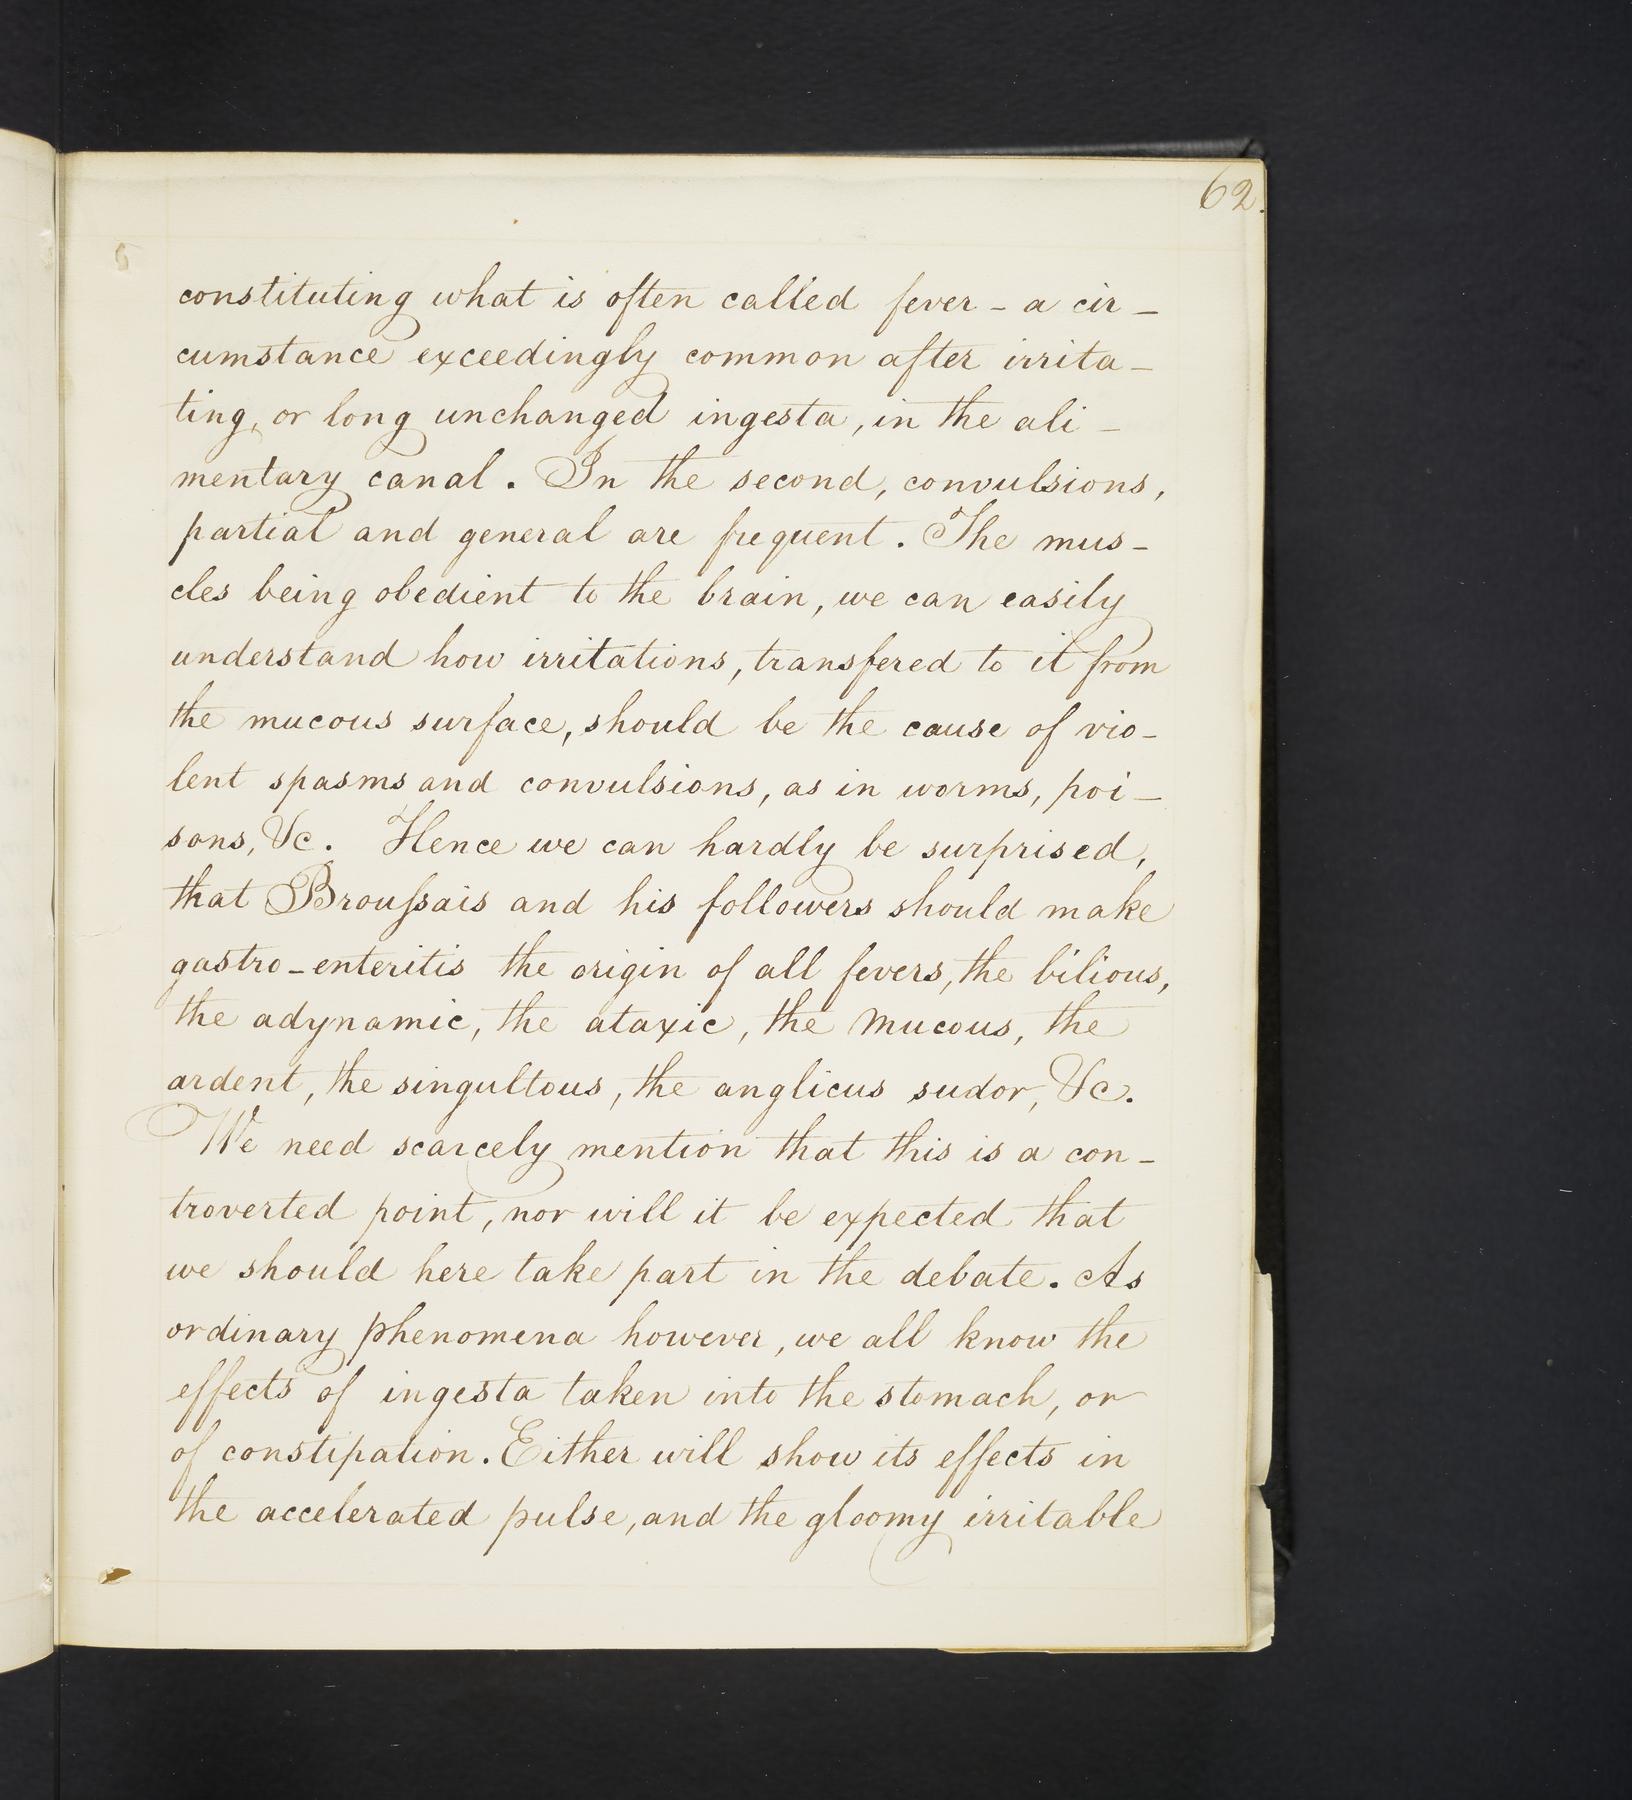 62.
constituting what is often called fever - a cir -
cumstance exceedingly common after irrita -
ting, or long unchanged ingesta, in the ali -
mentary canal. In the second, convulsions,
partial and general are frequent. The mus -
cles being obedient to the brain, we can easily
understand how irritations, transfered to it from
the mucous surface, should be the cause of vio -
lent spasms and convulsions, as in worms, poi -
sons, &c. Hence we can hardly be surprised,
that Brouſsais and his followers should make
gastro-enteritis the origin of all fevers, the bilious,
the adynamic, the ataxic, the mucous, the
ardent, the singultous, the anglicus sudor, &c.
We need scarcely mention that this is a con -
troverted point, nor will it be expected that
we should here take part in the debate. As
ordinary phenomena however, we all know the
effects of ingesta taken into the stomach, or
of constipation. Either will show its effects in
the accelerated pulse, and the gloomy irritable